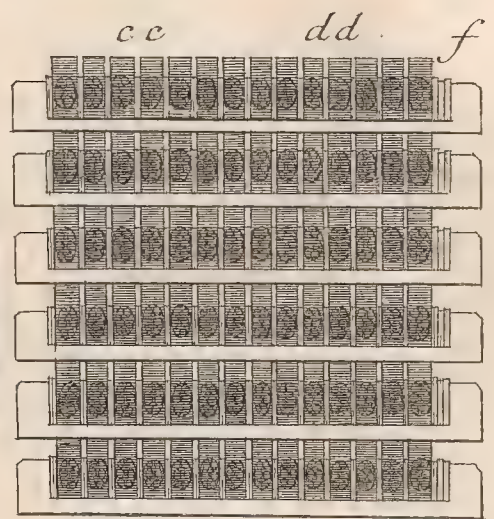 c c d d f